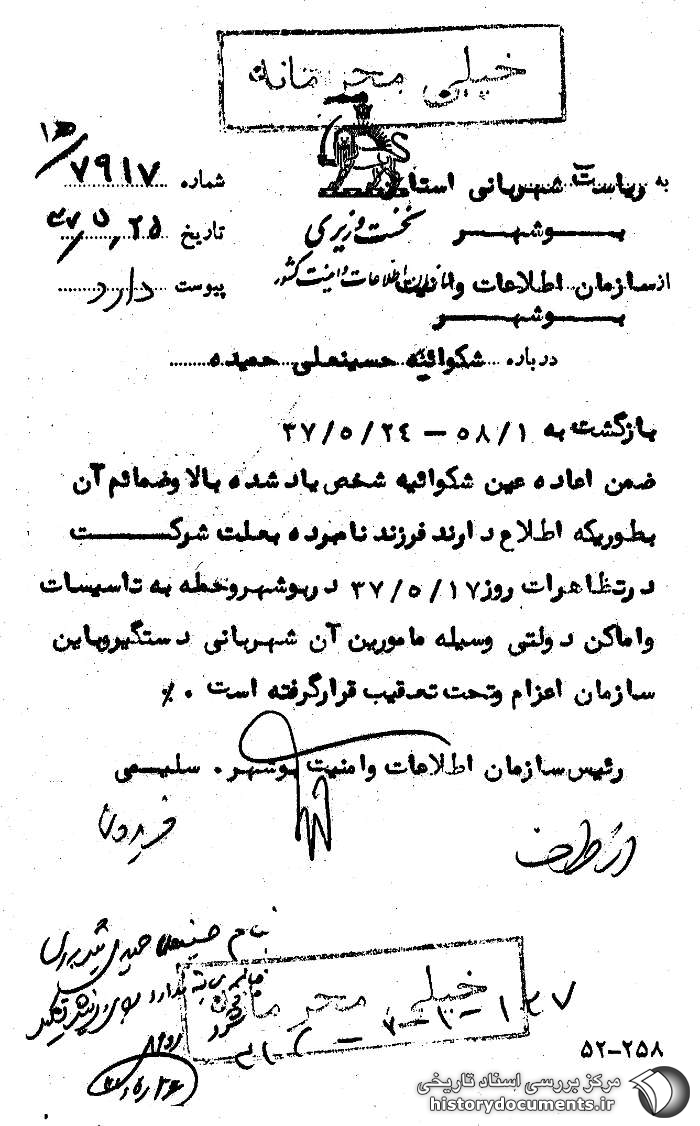 خیلی محرمانه
به ریاست شهربانی استان
بوشهر
نخست وزیری
سازمان اطلاعات و امنیت کشور
از سازمان اطلاعات وامنیت
بوشهر
شماره ۷۹۱۷
تاریخ ۳۷/۵/۲۵
پیوست دارد
درباره شکوائیه حسینعلی حمیده
بازگشت به ۵۸/۱ – ۳۷/۵/۲۴
ضمن اعاده عین شکوائیه شخص یاد شده بالا وضمائم آن
بطوریکه اطلاع دارند فرزند نامبرده بعلت شرکت
درتظاهرات روز ۳۷/۵/۱۷ دربوشهر وحمله به تاسیسات
واماکن دولتی وسیله مامورین آن شهربانی دستگیر وباین
سازمان اعزام وتحت تعقیب قرارگرفته است . ٪
رئیس سازمان اطلاعات وامنیت بوشهر . سلیمی
از طرف
خیلی محرمانه
۵۲-۲۵۸
مرکز بررسی اسناد تاریخی
historydocuments.ir